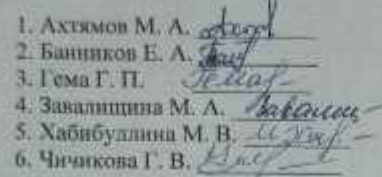 1. Ахтямов М. А.
2. Банников Е. А.
3. Гема Г. П.
4. Завалищина М. А.
5. Хабибуллина М. В.
6. Чичикова Г. В.